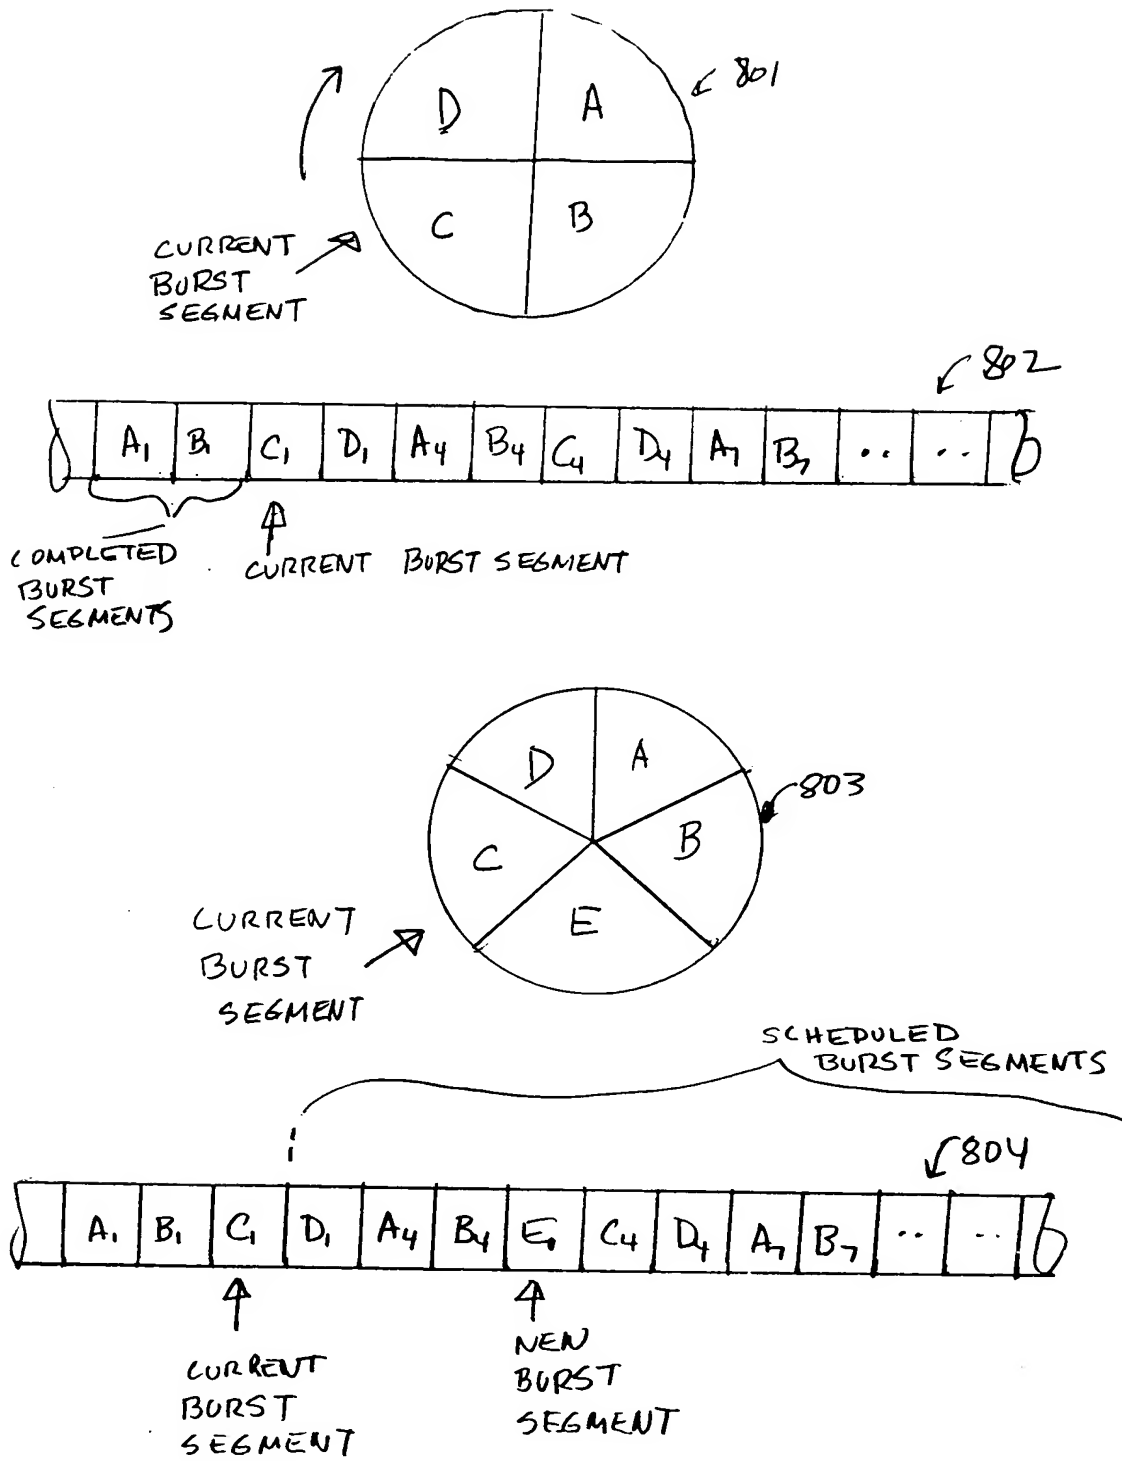 801
D A
C B
CURRENT
BURST
SEGMENT
802
A1 B1 C1 D1 A4 B4 C4 D4 A7 B7 .. ..
COMPLETED
BURST
SEGMENTS
CURRENT BURST SEGMENT
D A
803
C B
E
CURRENT
BURST
SEGMENT
SCHEDULED
BURST SEGMENTS
804
A1 B1 C1 D1 A4 B4 E1 C4 D4 A7 B7 .. ..
CURRENT
BURST
SEGMENT
NEW
BURST
SEGMENT